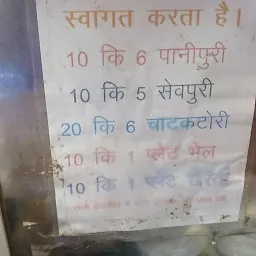 स्वांगत करता है।
10 कि 6 पानीपुरी
10 कि 5 सेवपुरी
20 कि 6 चाटकटोरी
10 कि 1 प्लेट भेल
10 कि 1 प्लेट